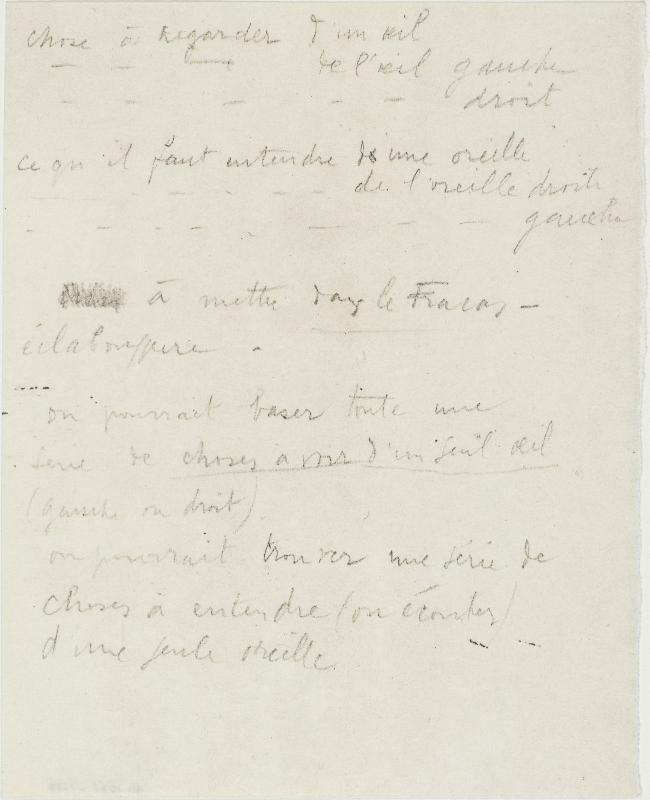 chose à regarder d'un œil
— — — de l'œil gauche
— — — — — droit
ce qu'il faut entendre d'une oreille
— — — — de l'oreille droite
— — — — — — — gauche
à mettre dans le Fracas –
éclaboussure .
on pourrait baser toute une
série de choses à voir d'un seul œil
(gauche ou droit).
on pourrait trouver une série de
choses à entendre (ou écouter)
d'une seule oreille.